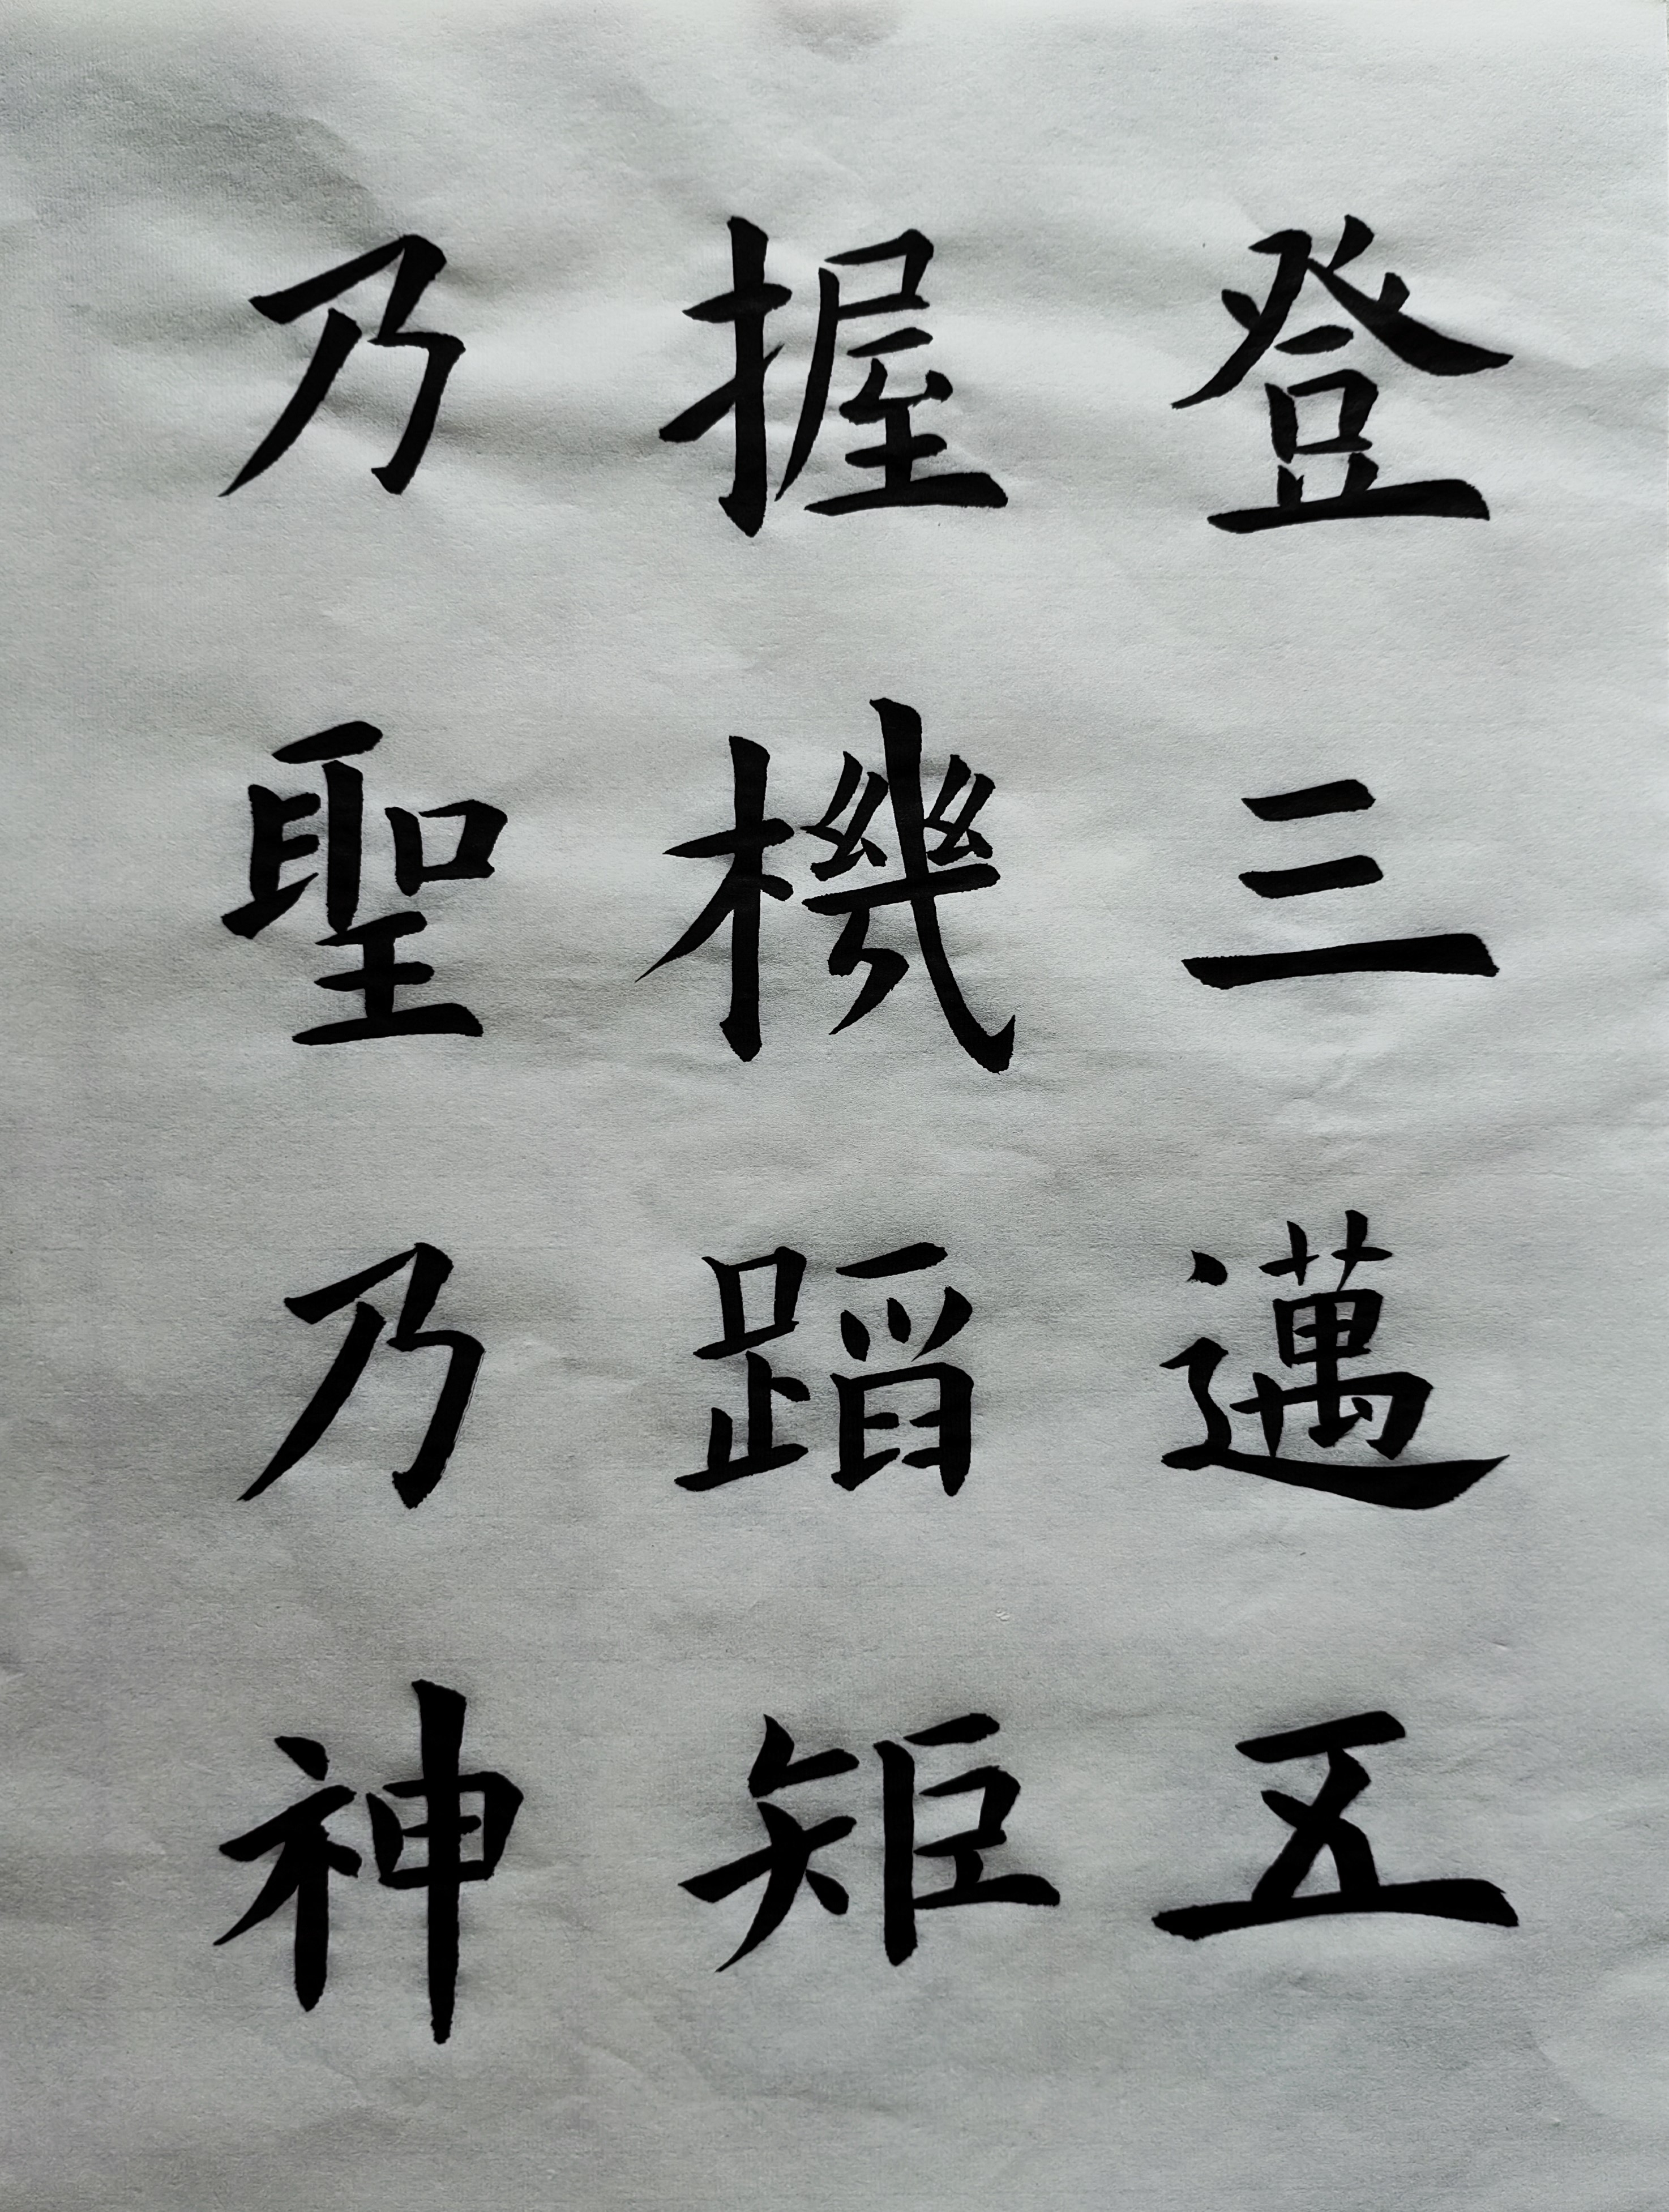 登三邁五
握機蹈矩
乃聖乃神